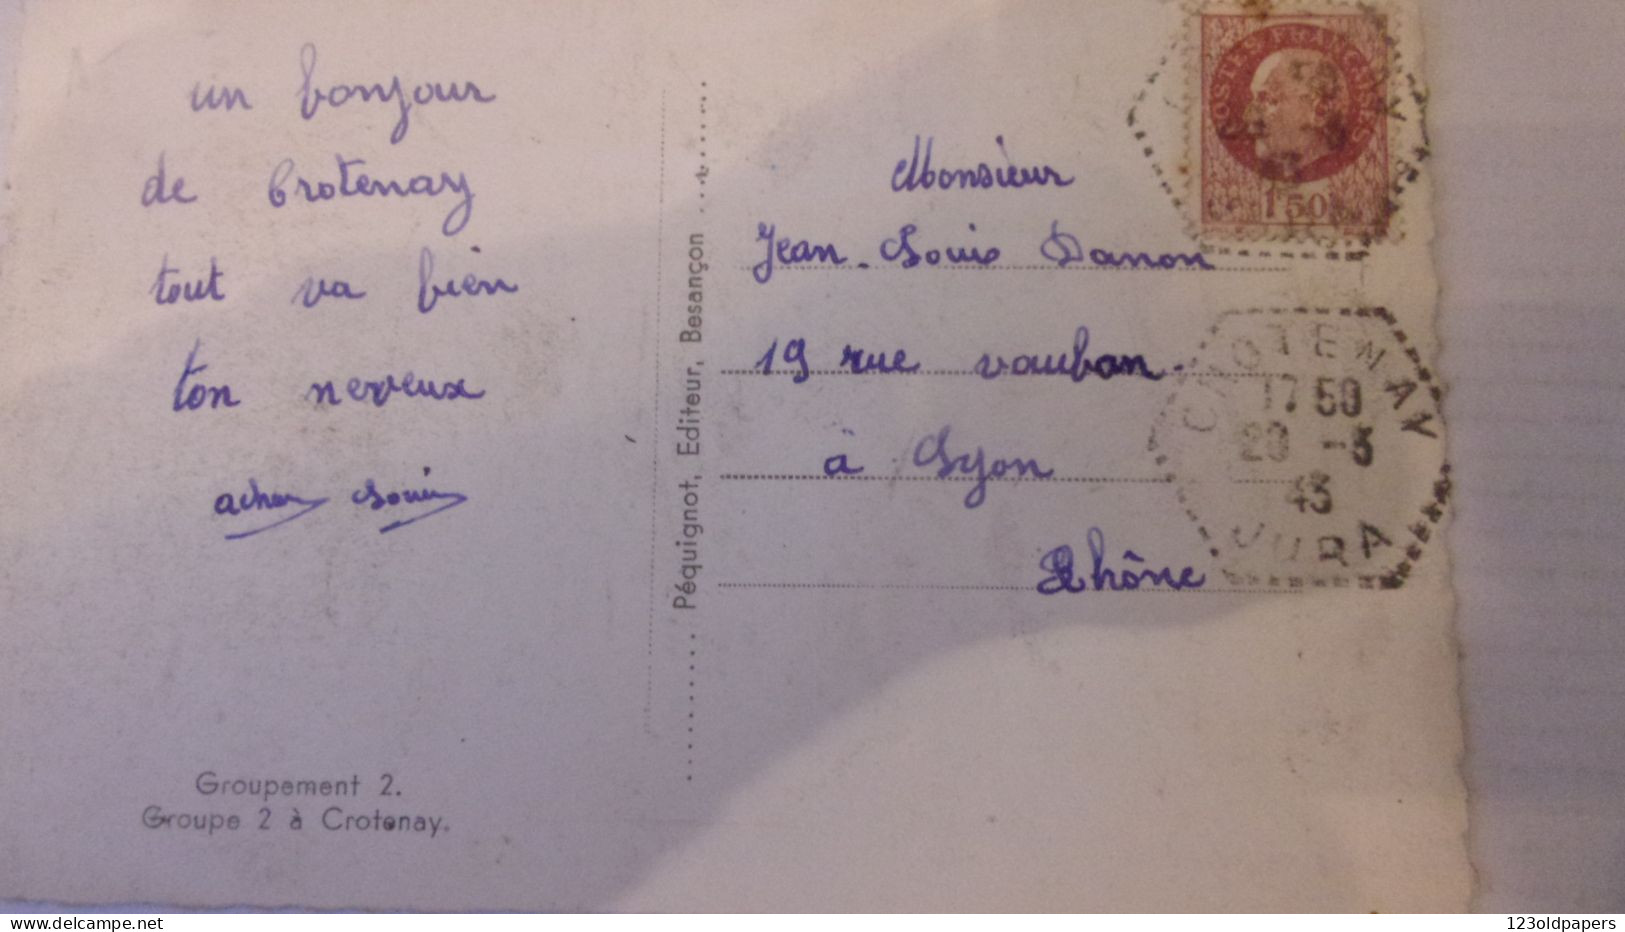 un bonjour
de Crotenay
tout va bien
ton neveux
Groupement 2.
Groupe 2 à Crotenay.
Péquignot, Editeur, Besançon
POSTES FRANÇAISES
1F50
Monsieur
Jean-Louis Danon
19 rue vauban.
à Lyon
Rhône
CROTENAY
17 50
20 -3
43
JURA
123oldpapers